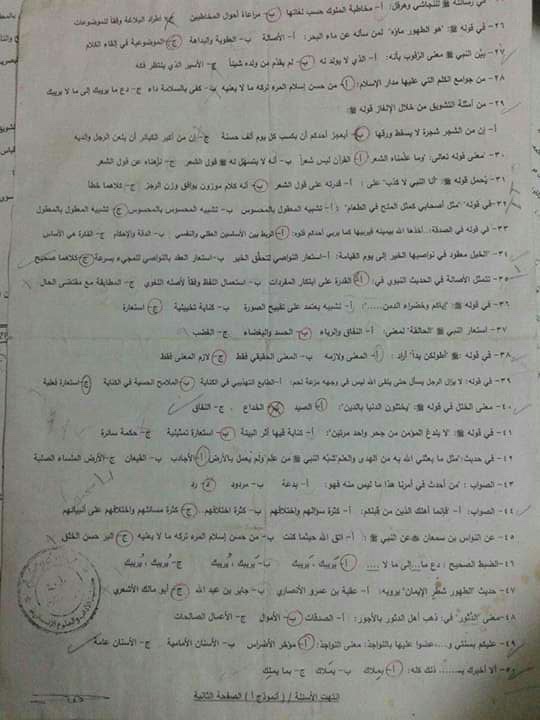 في رسالته ﷺ للنجاشي وهرقل: أ- مخاطبة الملوك حسب لغاتها ب- مراعاة أحوال المخاطبين ج- اطراد البلاغة وفقاً للموضوعات
٢٦- في قوله ﷺ "هو الطهور ماؤه" لمن سأله عن ماء البحر: أ- الأصالة ب- العفوية والبداهة ج- الموضوعية في إلقاء الكلام
٢٧- بيّن النبي ﷺ معنى الرقوب بأنه: أ- الذي لا يولد له ب- لم يقدّم من ولده شيئاً ج- الأسير الذي ينتظر فكه
٢٨- من جوامع الكلم التي عليها مدار الإسلام: أ- من حسن إسلام المرء تركه ما لا يعنيه ب- كفى بالسلامة داء ج- دع ما يريبك إلى ما لا يريبك
٢٩- من أمثلة التشويق من خلال الإلغاز قوله ﷺ:
أ- إن من الشجر شجرة لا يسقط ورقها ب- أيعجز أحدكم أن يكسب كل يوم ألف حسنة ج- إن من أكبر الكبائر أن يلعن الرجل والديه
٣٠- معنى قوله تعالى: "وما علّمناه الشعر" أ- القرآن ليس شعراً ب- أنه لا يتسهّل له قول الشعر ج- نزهناه عن قول الشعر
٣١- يُحمل قوله ﷺ: "أنا النبي لا كذب" على: أ- قدرته على قول الشعر ب- أنه كلام موزون يوافق وزن الرجز ج- كلاهما خطأ
٣٢- في قوله: "مثل أصحابي كمثل الملح في الطعام": أ- تشبيه المعقول بالمحسوس ب- تشبيه المحسوس بالمحسوس ج- تشبيه المعقول بالمعقول
٣٣- في قوله ﷺ في الصدقة: أخذها الله بيمينه فيربيها كما يربي أحدكم فلوه: أ- الربط بين الأساسين العقلي والنفسي ب- الدقة والإحكام ج- الفكرة هي الأساس
٣٤- "الخيل معقود في نواصيها الخير إلى يوم القيامة: أ- استعار النواصي لتحقّق الخير ب- استعار العقد بالنواصي للمجيء بسرعة ج- كلاهما صحيح
٣٥- تتمثل الأصالة في الحديث النبوي في: أ- القدرة على ابتكار المفردات ب- استعمال اللفظ وفقاً لأصله اللغوي ج- المطابقة مع مقتضى الحال
٣٦- في قوله ﷺ: "إياكم وخضراء الدمن....." أ- تشبيه يعتمد على تقبيح الصورة ب- كناية تخييلية ج- استعارة
٣٧- استعار النبي ﷺ "الحالقة" لمعنى: أ- النفاق والرياء ب- الحسد والبغضاء ج- الغضب
٣٨- في قوله ﷺ: "أطولكن يداً" أراد: أ- المعنى ولازمه ب- المعنى الحقيقي فقط ج- لازم المعنى فقط
٣٩- في قوله: لا يزال الرجل يسأل حتى يلقى الله ليس في وجهه مزعة لحم: أ- الطابع التهذيبي في الكناية ب- الملامح الحسية في الكناية ج- استعارة فعلية
٤٠- معنى الختل في قوله ﷺ "يختلون الدنيا بالدين": أ- الصيد ب- الخداع ج- النفاق
٤١- في قوله ﷺ: "لا يلدغ المؤمن من جحر واحد مرتين": أ- كناية فيها أثر البيئة ب- استعارة تمثيلية ج- حكمة سائرة
٤٢- في حديث: "مثل ما بعثني الله به من الهدى والعلم" شبّه النبي ﷺ من علِم ولم يعمل بالأرض: أ- الأجادب ب- القيعان ج- الأرض الملساء الصلبة
٤٣- الصواب : "من أحدث في أمرنا هذا ما ليس منه فهو: أ- بدعة ب- مردود ج- رد
٤٤- الصواب: أ- فإنما أهلك الذين من قبلكم: أ- كثرة سؤالهم واختلافهم ب- كثرة اختلافهم ج- كثرة مسائلهم واختلافهم على أنبيائهم
٤٥- عن النواس بن سمعان عن النبي ﷺ: أ- اتق الله حيثما كنت ب- من حسن إسلام المرء تركه ما لا يعنيه ج- البر حسن الخلق
٤٦- الضبط الصحيح : دع ما...إلى ما لا .... أ- يَريبك ، يَريبك ب- يَريبك ، يُريبك ج- يُريبك ، يُريبك
٤٧- حديث "الطهور شطر الإيمان" يرويه: أ- عقبة بن عمرو الأنصاري ب- جابر بن عبد الله ج- أبو مالك الأشعري
٤٨- معنى "الدثور" في: ذهب أهل الدثور بالأجور: أ- الصدقات ب- الأموال ج- الأعمال الصالحات
٤٩- عليكم بسنتي و...عضوا عليها بالنواجذ: معنى النواجذ: أ- مؤخر الأضراس ب- الأسنان الأمامية ج- الأسنان عامة
٥٠- ألا أخبرك بـ..... ذلك كله: أ- بمِلاك ب- بمَلاك ج- بما يملك
انتهت الأسئلة / ( أنموذج أ ) الصفحة الثانية